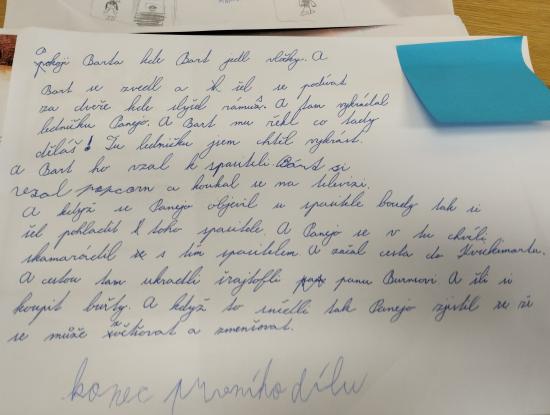 pokoji Barta kde Bart jedl vločky. A
Bart se zvedl a šel se podívat
za dveře kde slyšel rámus. A tam vykrádal
ledničku Panejo. A Bart mu řekl co tady
děláš! Tu ledničku jsem chtěl vykrást.
a Bart ho vzal k spaciteli. Bart si
vzal popcorn a koukal se na televizi.
A když se Panejo objevil u spacitele boudy tak si
šel pohladit toho spacitele. A Panejo se v tu chvíli
skamarádil s tím spacitelem. A začal cesta do Kvikimartu.
A cestou tam ukradli panu Burnsovi A šli si
koupit buřty. A když to snědli tak Panejo zjistil že
se může zvětšovat a zmenšovat.
konec prvního dílu